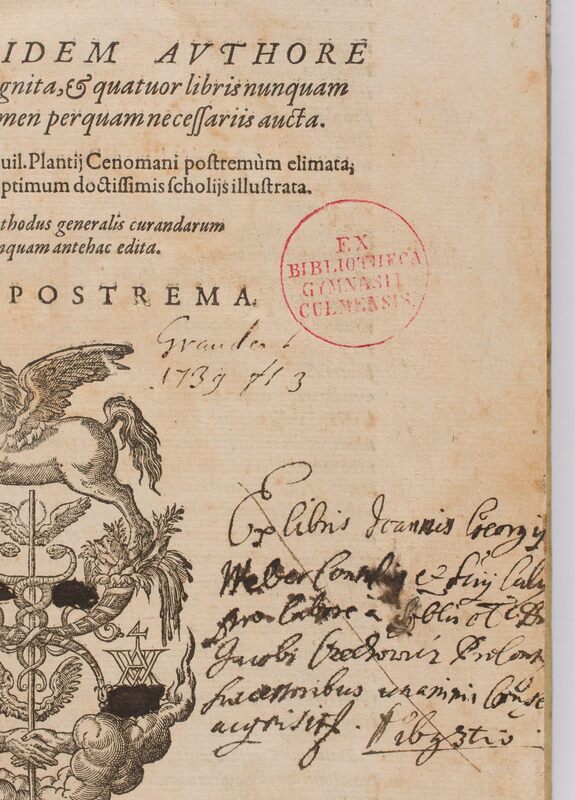 IDEM AVTHORE
gnita, & quatuor libris nunquam
men perquam necessariis aucta.
uil. Plantij Cenomani postremùm elimata,
ptimum doctissimis scholijs illustrata.
thodus generalis curandarum
nquam antehac edita.
POSTREMA.
EX
BIBLIOTHECA
GYMNASII
CULMENSIS.
1739 fl 3
4
Ex libris Ioannis Georgy
Weber
pro labore à
Jacobi
successoribus unanimi